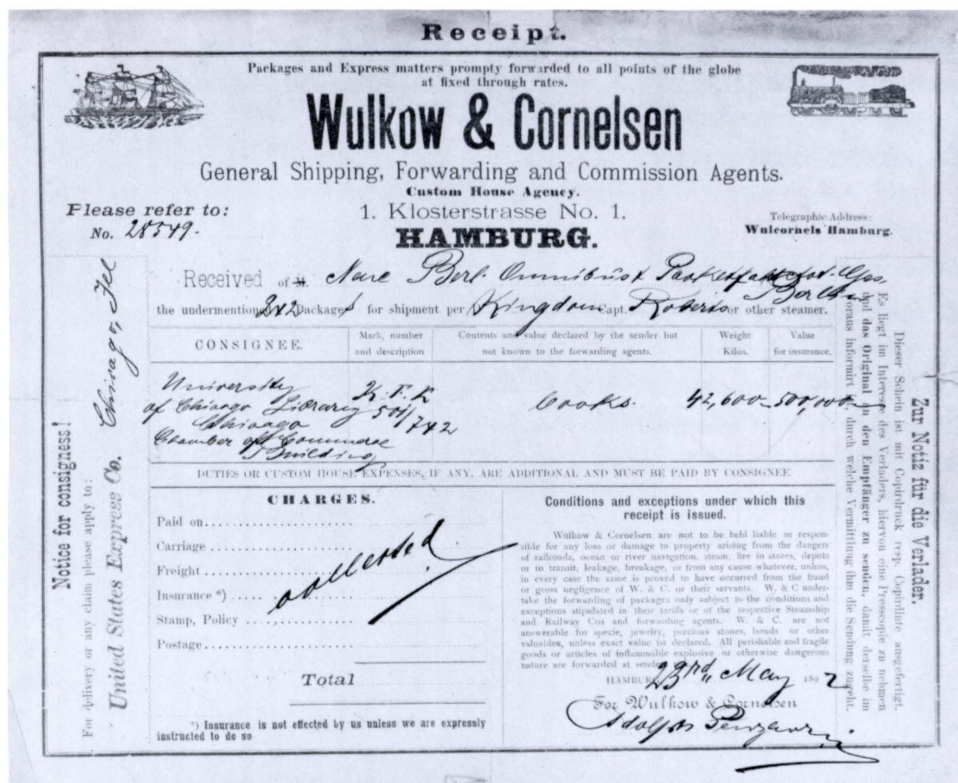 Receipt.
Packages and Express matters prompty forwarded to all points of the globe
at fixed through rates.
Wulkow & Cornelsen
General Shipping, Forwarding and Commission Agents.
Custom House Agency.
Please refer to:
No. 28549.
1. Klosterstrasse No. 1.
HAMBURG.
Telegraphic Address:
Wulcornels Hamburg.
Received of M. Neue Berl. Omnibus & Packetfahrt Ges.
Berlin
the undermentioned 342 Package s for shipment per Kingdom Capt. Roberts or other steamer.
CONSIGNEE.
Mark, number
and description
Contents and value declared by the sender but
not known to the forwarding agents.
Weight
Kilos.
Value
for insurance.
University
of Chicago Library
Chicago
Chamber of Commerce
Building
501/742
books.
42,600
500,000.
DUTIES OR CUSTOM HOUSE EXPENSES, IF ANY, ARE ADDITIONAL AND MUST BE PAID BY CONSIGNEE.
CHARGES.
Paid on
Carriage
Freight
Insurance *)
Stamp, Policy
Postage
collected
Total
*) Insurance is not effected by us unless we are expressly
instructed to do so
Conditions and exceptions under which this
receipt is issued.
Wulkow & Cornelsen are not to be held liable or respon-
sible for any loss or damage to property arising from the dangers
of railroads, ocean or river navigation, steam, fire in stores, depots
or in transit, leakage, breakage, or from any cause whatever, unless,
in every case the same is proved to have occurred from the fraud
or gross negligence of W. & C. or their servants. W. & C under-
take the forwarding of packages only subject to the conditions and
exceptions stipulated in these tariffs or of the respective Steamship
and Railway Cos and forwarding agents. W. & C. are not
answerable for specie, jewelry, precious stones, bonds or other
valuables, unless exact value ist declared. All perishable and fragile
goods or articles of inflammable explosive or otherwise dangerous
nature are forwarded at sender
HAMBURG 23rd May 1892
For Wulkow & Cornelsen
Adolph
Notice for consigness!
For delivery or any claim please apply to:
United States Express Co. Chicago, Ill
Zur Notiz für die Verlader.
Dieser Schein ist mit Copirdruck resp. Copirdinte ausgefertigt.
Es liegt im Interesse des Verladers, hiervon eine Presscopie zu nehmen
und das Original an den Empfänger zu senden, damit derselbe im
voraus informirt, durch welche Vermittlung ihm die Sendung zugeht.